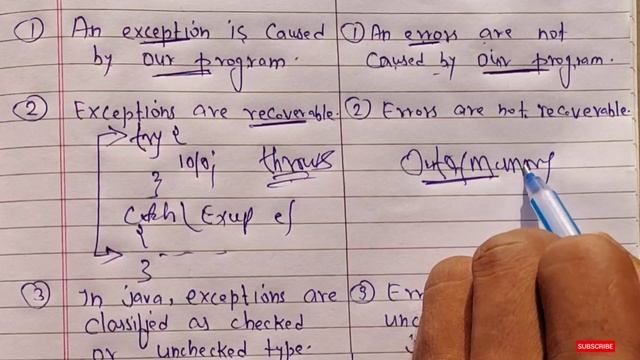 ① An exception is caused
by our program.
② Exceptions are recoverable.
try {
10/0;
throws
}
Catch ( Excep e)
{
}
③ In java, exceptions are
classified as checked
or unchecked type.
① An errors are not
caused by our program.
② Errors are not recoverable.
Out of Memory
③ Err
unc
SUBSCRIBE